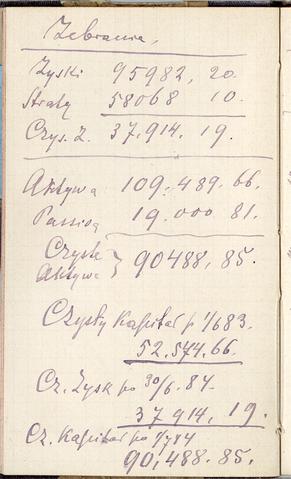 Zebranie,
Zyski 95982, 20.
Straty 58068 10.
Czys. Z. 37,914, 19.
Aktywa 109,489. 66.
Passiva 19.000 81.
Czyste
Aktywa } 90488, 85.
Czysty Kapitał p 1/6 83.
52,574.66.
Cz. Zysk po 30/6. 84.
37914, 19.
Cz. Kapitał po 1/7 84
90,488. 85.